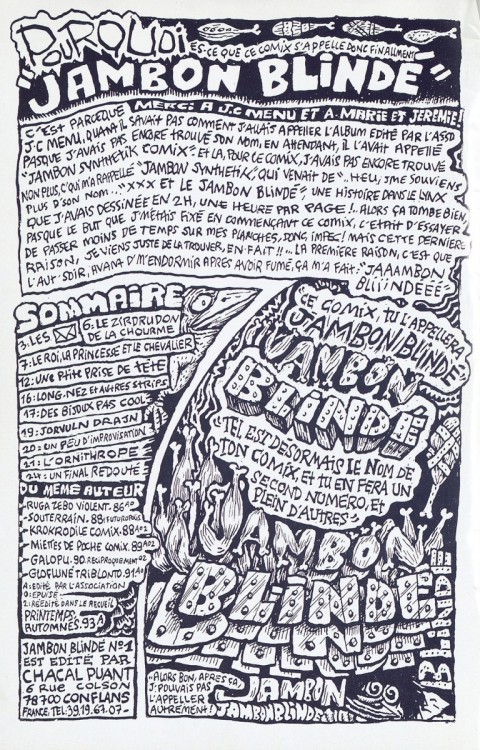 POURQUOI
ES-CE QUE CE COMIX S'APPELLE DONC FINALLMENT
"JAMBON BLINDÉ"
MERCI A J.C MENU ET A-MARIE ET JEREMIE!
C'EST PARCEQUE
J-C MENU, QUANT IL SAVAIT PAS COMMENT J'ALLAIS APPELLER L'ALBUM EDITÉ PAR L'ASSO
PASQUE J'AVAIS PAS ENCORE TROUVÉ SON NOM, EN ATTENDANT, IL L'AVAIT APPELLÉ
"JAMBON SYNTHETIK COMIX" ET LÀ, POUR LE COMIX, J'AVAIS PAS ENCORE TROUVÉ
NON PLUS, C'QUI M'A RAPPELLÉ "JAMBON SYNTHETIK", QUI VENAIT DE "..HEU, J'ME SOUVIENS
PLUS D'SON NOM..." "XXX ET LE JAMBON BLINDÉ", UNE HISTOIRE DANS LE LYNX
QUE J'AVAIS DESSINÉE EN 2H, UNE HEURE PAR PAGE!.. ALORS ÇA TOMBE BIEN,
PASQUE LE BUT QUE J'M'ÉTAIS FIXÉ EN COMMENÇANT CE COMIX, C'ETAIT D'ESSAYER
DE PASSER MOINS DE TEMPS SUR MES PLANCHES, DONC, IMPEC! MAIS CETTE DERNIÈRE
RAISON, JE VIENS JUSTE DE LA TROUVER, EN FAIT!!... LA PREMIERE RAISON, C'EST QUE
L'AUT'SOIR, AVANT D'M'ENDORMIR APRÈS AVOIR FUMÉ, ÇA M'A FAIT: "JAAAMBON
BLIIINDÉÉÉ"
SOMMAIRE
3: LES
6: LE ZIRDRUDON
DE LA CHOURME
7: LE ROI, LA PRINCESSE ET LE CHEVALIER
12: UNE PTITE PRISE DE TÊTE
16: LONG-NEZ ET AUTRES STRIPS
17: DES BIJOUX PAS COOL
19: JORVULN DRAJN
20: UN PEU D'IMPROVISATION
21: L'ORNITHROPE
24: UN FINAL REDOUTÉ
DU MÊME AUTEUR
-RUGA ZEBO VIOLENT. 86 A0
-SOUTERRAIN. 89 (FUTUROPOLIS)
-KROKRODILE COMIX. 88 A02
-MIETTES DE POCHE COMIX. 89 A02
-GALOPU. 90. RECIPROQUEMENT 02
-GLOFUNÉ TRIBLONTO. 91 A0
A: EDITÉ PAR L'ASSOCIATION
0: EPUISÉ
2: RÉÉDITÉ DANS LE RECUEIL
PRINTEMPS
AUTOMNES. 93 A
JAMBON BLINDÉ N°1
EST EDITÉ PAR
CHACAL PUANT
6 RUE COLSON
78700 CONFLANS
FRANCE. TEL: 39.19.67.07-
"CE COMIX, TU L'APPELLERA
JAMBON BLINDÉ
JAMBON
BLINDÉ
"TEL EST DESORMAIS LE NOM DE
TON COMIX, ET TU EN FERA UN
SECOND NUMÉRO, ET
PLEIN D'AUTRES"
JAMBON
BLINDÉ
BLINDÉ
"ALORS BON, APRES ÇA,
J'POUVAIS PAS
L'APPELLER
AUTREMENT!
JAMBON
JAMBONBLINDÉ!!!!